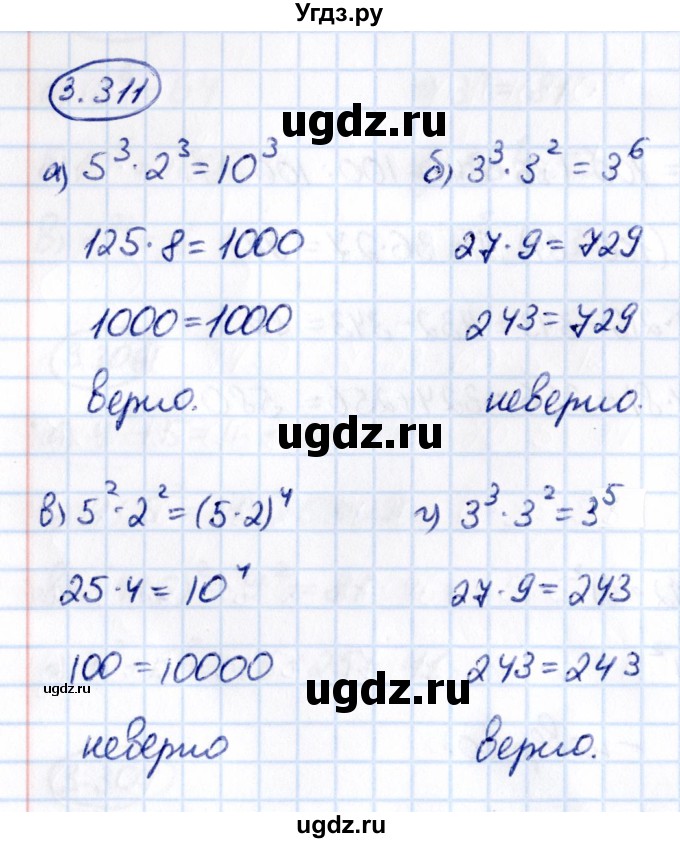 Угдз.ру
3.311
ugdz.ru
а) 5³·2³=10³
125·8=1000
1000=1000
верно.
б) 3³·3²=3⁶
27·9=729
243=729
неверно.
ugdz.ru
в) 5²·2²=(5·2)⁴
25·4=10⁴
100=10000
неверно
г) 3³·3²=3⁵
27·9=243
243=243
верно.
ugdz.ru
ugdz.ru
ugdz.ru